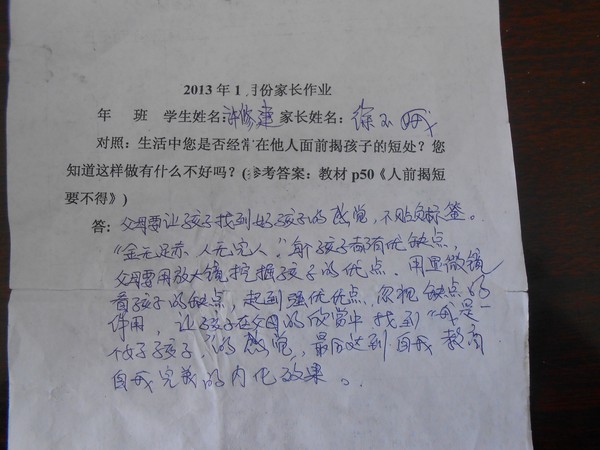 2013年1月份家长作业
年 班 学生姓名:许修建 家长姓名:徐玉娥
对照：生活中您是否经常在他人面前揭孩子的短处？您
知道这样做有什么不好吗？(参考答案：教材p50《人前揭短
要不得》)
答: 父母要让孩子找到好孩子的感觉，不贴负标签。
“金无足赤 人无完人”，每个孩子都有优缺点，
父母要用放大镜挖掘孩子的优点、用显微镜
看孩子的缺点，起到强优优点，忽视缺点的
作用，让孩子在父母的欣赏中找到“我是一
个好孩子”的感觉，最后达到自我教育
自我完美的内化效果。